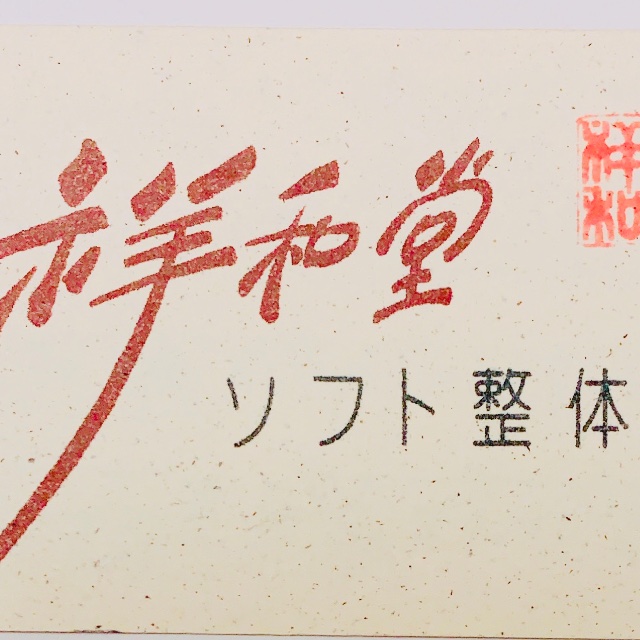 祥和堂
祥和
ソフト整体